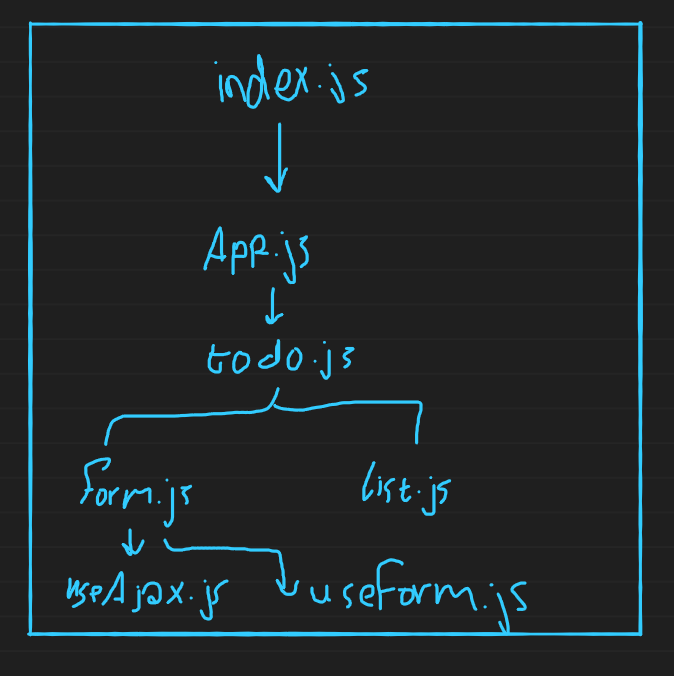 index.js
App.js
todo.js
form.js
list.js
useAjax.js
useform.js